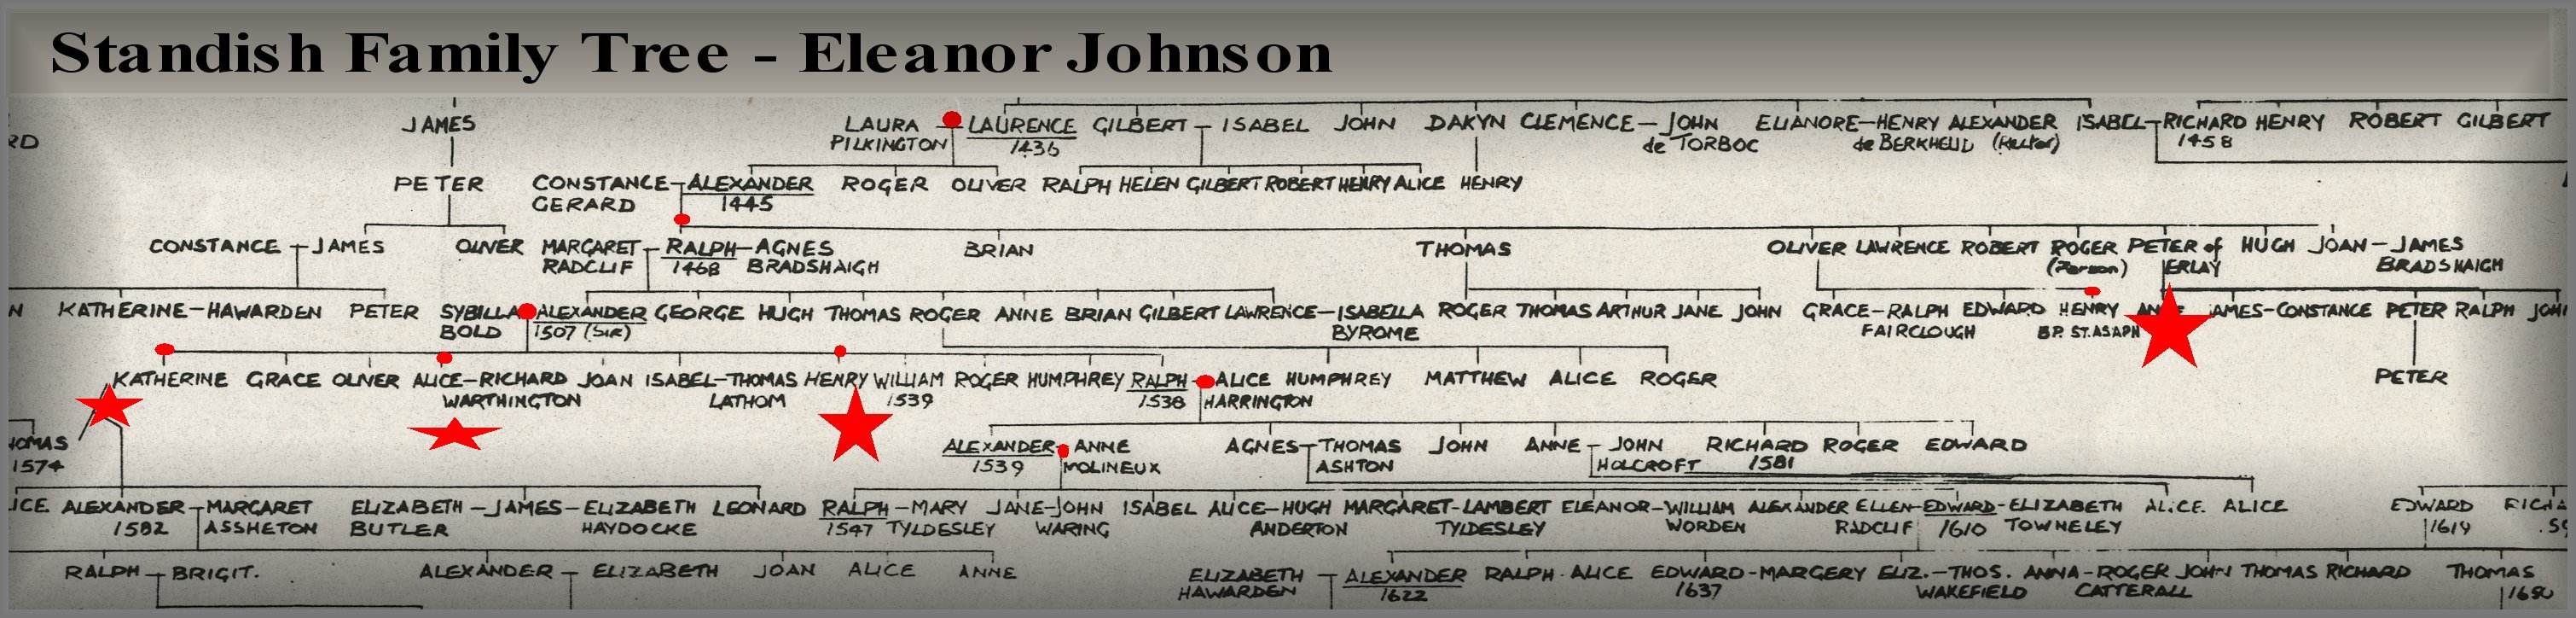 Standish Family Tree - Eleanor Johnson
JAMES LAURA LAURENCE GILBERT ISABEL JOHN DAKYN CLEMENCE - JOHN ELIANORE - HENRY ALEXANDER ISABEL RICHARD HENRY ROBERT GILBERT
RD PILKINGTON 1436 de TORBOC de BERKHEUD (Rector) 1458
PETER CONSTANCE ALEXANDER ROGER OLIVER RALPH HELEN GILBERT ROBERT HENRY ALICE HENRY
GERARD 1445
CONSTANCE JAMES OLIVER MARGARET RALPH - AGNES BRIAN THOMAS OLIVER LAWRENCE ROBERT ROGER PETER of HUGH JOAN - JAMES
RADCLIF 1468 BRADSHAIGH (Parson) ERLAY BRADSHAIGH
N KATHERINE - HAWARDEN PETER SYBILLA ALEXANDER GEORGE HUGH THOMAS ROGER ANNE BRIAN GILBERT LAWRENCE - ISABELLA ROGER THOMAS ARTHUR JANE JOHN GRACE - RALPH EDWARD HENRY AMES - CONSTANCE PETER RALPH JOH
BOLD 1507 (SIR) BYROME FAIRCLOUGH BP. ST. ASAPH
KATHERINE GRACE OLIVER ALICE - RICHARD JOAN ISABEL - THOMAS HENRY WILLIAM ROGER HUMPHREY RALPH ALICE HUMPHREY MATTHEW ALICE ROGER PETER
WARTHINGTON LATHOM 1539 1538 HARRINGTON
HOMAS ALEXANDER ANNE AGNES THOMAS JOHN ANNE - JOHN RICHARD ROGER EDWARD
1574 1539 MOLINEUX ASHTON HOLCROFT 1581
ICE ALEXANDER MARGARET ELIZABETH - JAMES - ELIZABETH LEONARD RALPH - MARY JANE - JOHN ISABEL ALICE - HUGH MARGARET - LAMBERT ELEANOR - WILLIAM ALEXANDER ELLEN - EDWARD - ELIZABETH ALICE. ALICE EDWARD RICHA
1582 ASSHETON BUTLER HAYDOCKE 1547 TYLDESLEY WARING ANDERTON TYLDESLEY WORDEN RADCLIF 1610 TOWNELEY 1619
RALPH BRIGIT. ALEXANDER ELIZABETH JOAN ALICE ANNE ELIZABETH ALEXANDER RALPH - ALICE EDWARD - MARGERY ELIZ. - THOS. ANNA - ROGER JOHN THOMAS RICHARD THOMAS
HAWARDEN 1622 1637 WAKEFIELD CATTERALL 1650